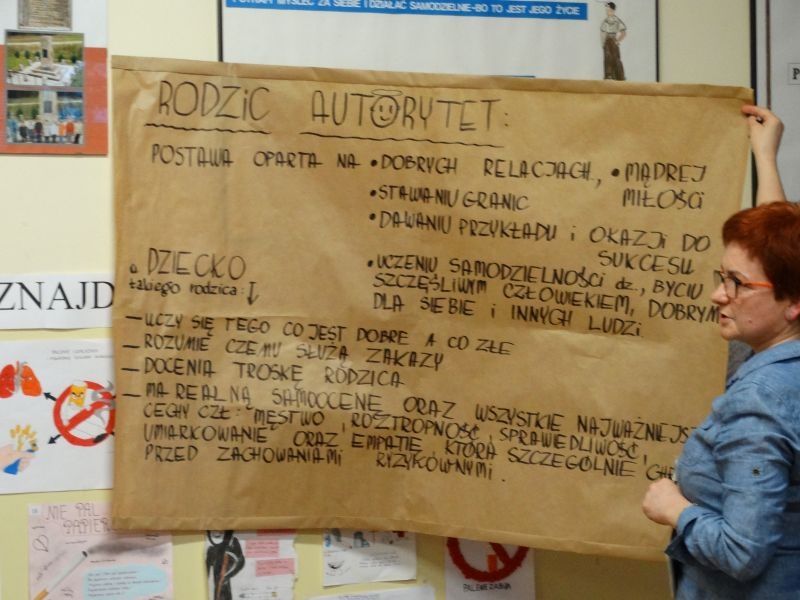 POTRAFI MYŚLEĆ ZA SIEBIE I DZIAŁAĆ SAMODZIELNIE-BO TO JEST JEGO ŻYCIE
RODZIC AUTORYTET:
POSTAWA OPARTA NA • DOBRYCH RELACJACH, • MĄDREJ MIŁOŚCI
• STAWANIU GRANIC
• DAWANIU PRZYKŁADU i OKAZJI DO SUKCESU
• UCZENIU SAMODZIELNOŚCI dz., BYCIU
SZCZĘŚLIWYM CZŁOWIEKIEM, DOBRYM
DLA SIEBIE i INNYCH LUDZI.
a DZIECKO
takiego rodzica: ↓
— UCZY SIĘ TEGO CO JEST DOBRE A CO ZŁE
— ROZUMIE CZEMU SŁUŻĄ ZAKAZY
— DOCENIA TROSKĘ RODZICA
— MA REALNĄ SAMOOCENĘ ORAZ WSZYSTKIE
CECHY CZŁ: MĘSTWO, ROZTROPNOŚĆ, SPRAWIEDLIWOŚĆ,
UMIARKOWANIE ORAZ EMPATIĘ KTÓRA SZCZEGÓLNIE
PRZED ZACHOWANIAMI RYZYKOWNYMI.
ZNAJD
NIE PAL